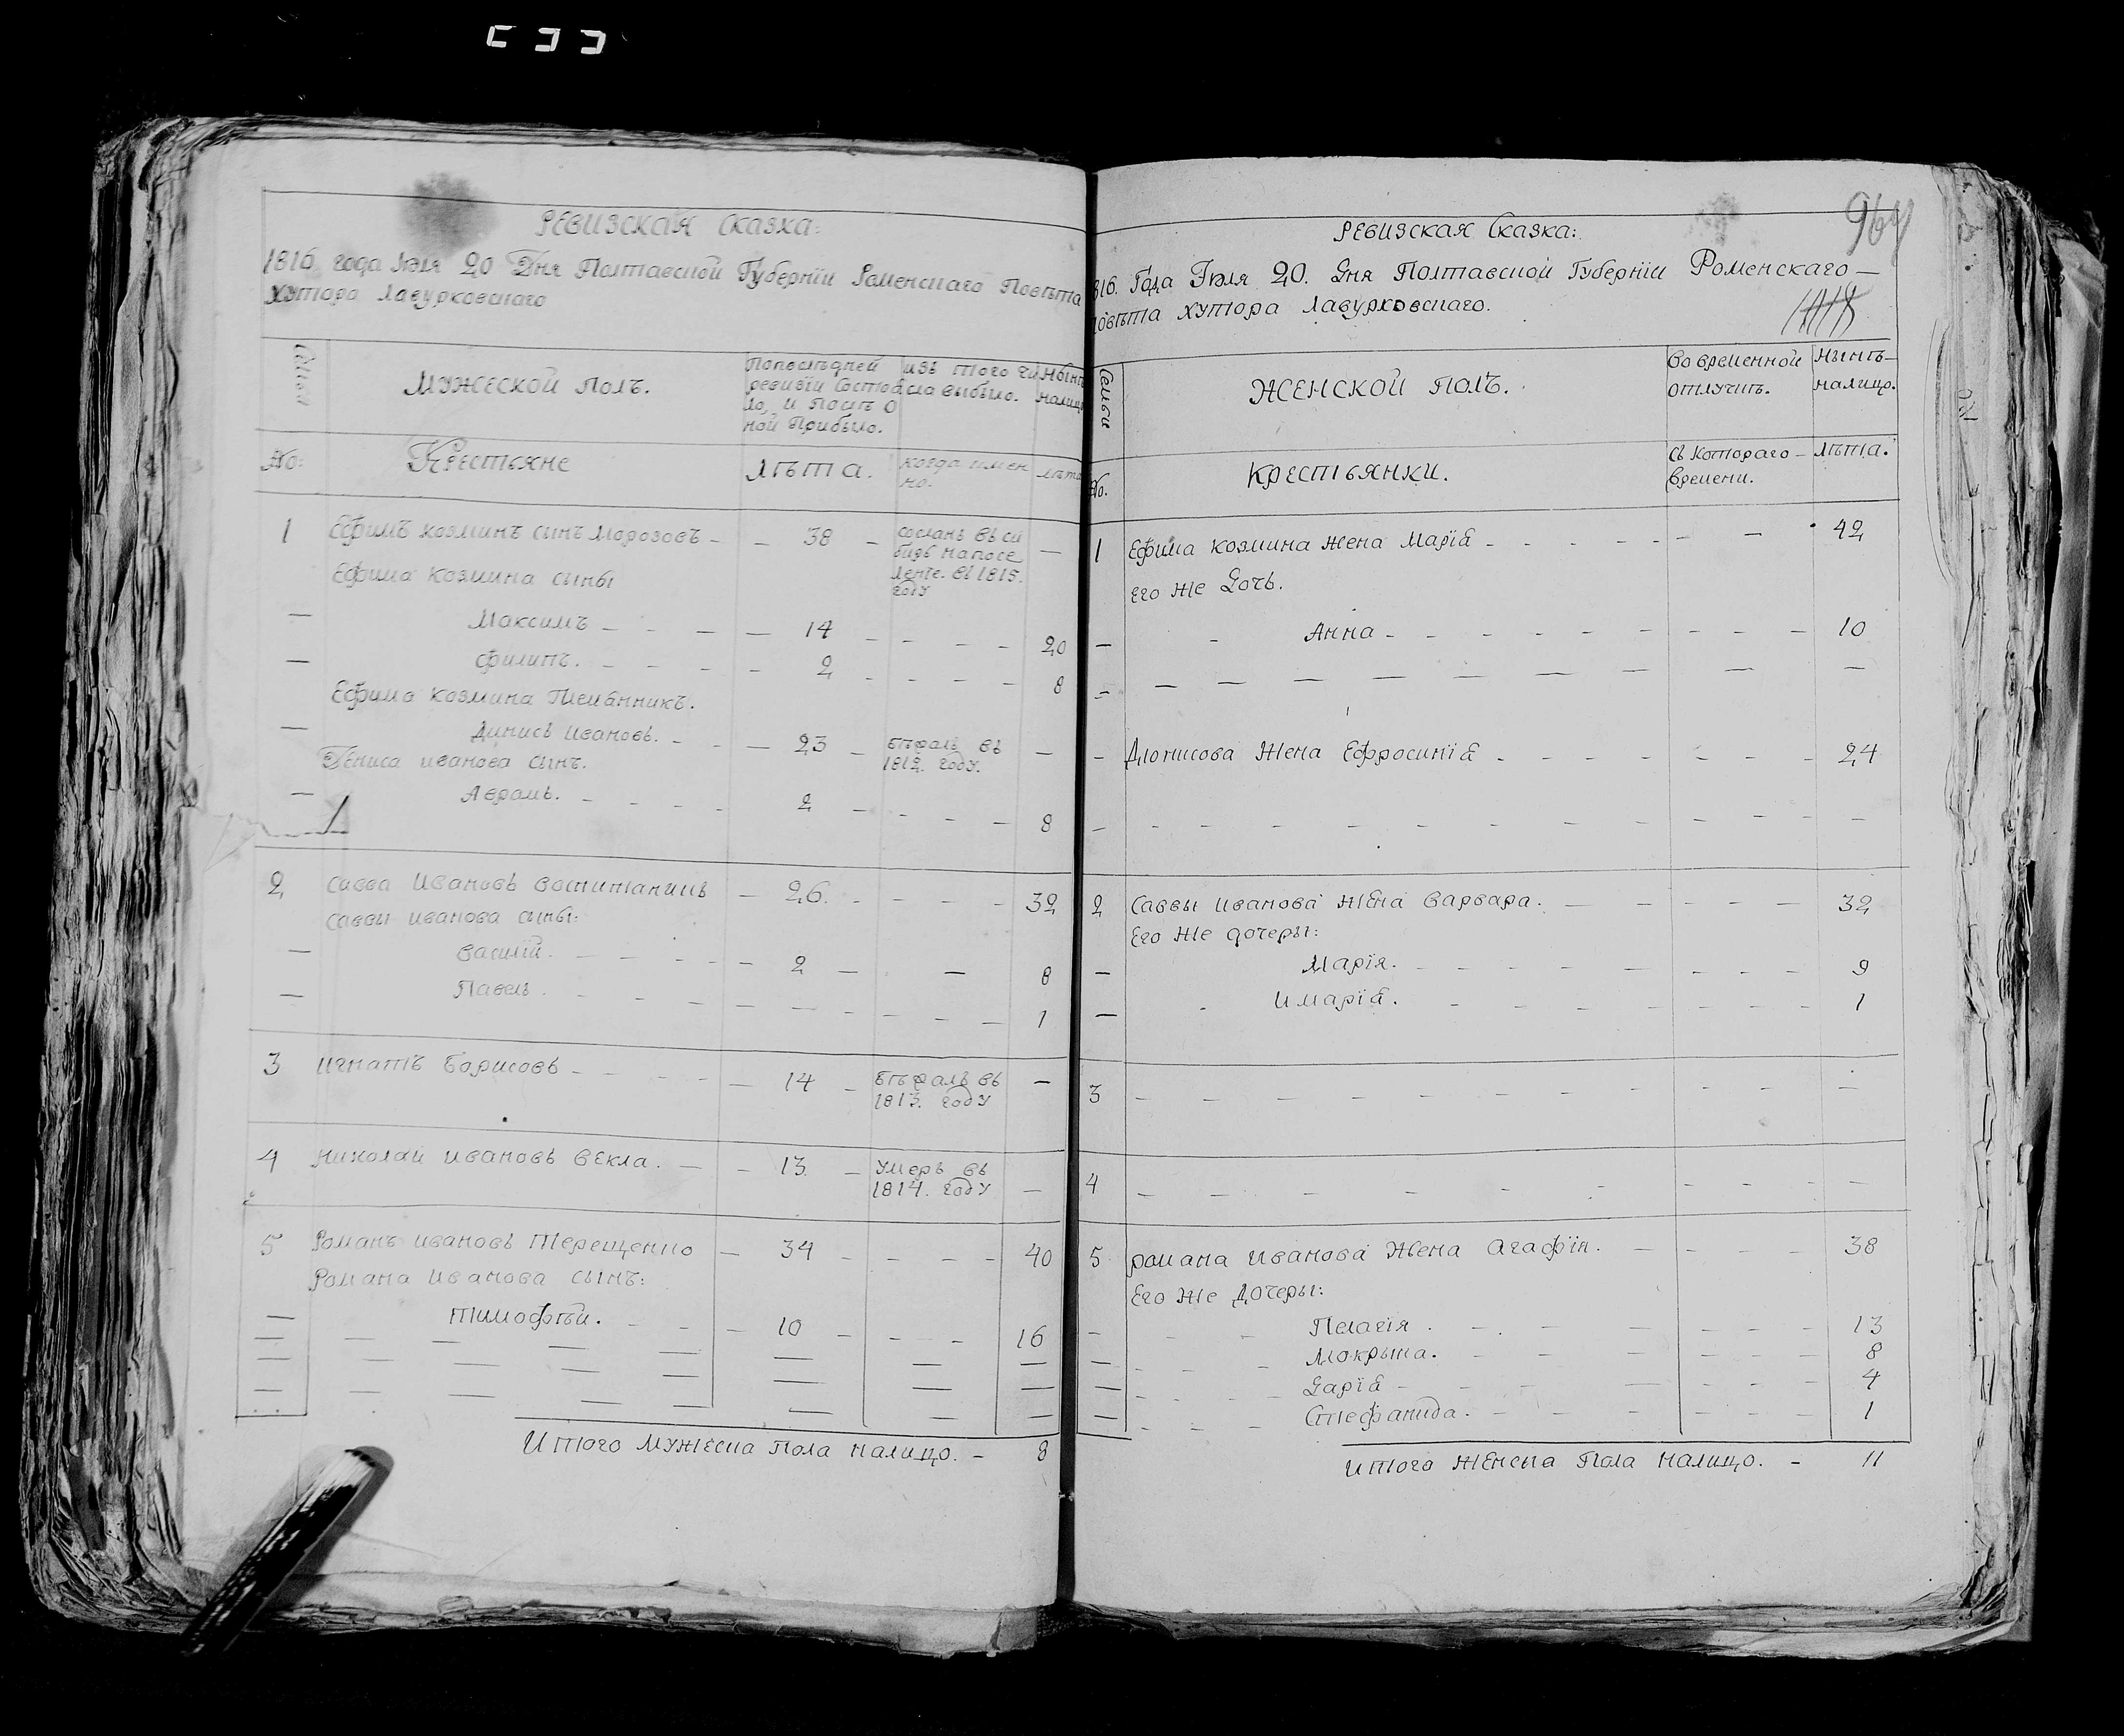 РЕВИЗСКАЯ Сказка:
1816 года Июля 20 Дня Полтавской Губернїи Роменскаго Повѣта
хутора Лавурковскаго
Семьи
МУЖЕСКОЙ ПОЛЪ.
Попослѣдней ревизїи Состояло, и Послѣ оной Прибыло.
изъ того числа выбыло.
Нынѣ налицо
№:
Крестьяне
Лѣта.
когда имен но.
лѣта
1 Ефимъ козминъ сынъ Морозовъ - - 38 - сосланъ въ си
бирь на посе
ленїе. въ 1815.
году —
Ефима Козмина сыны
— Максимъ - - — — 14 - - - - 20
— филипъ. - - - - 2 - - - - 8
Ефима Козмина Племянникъ.
— Динисъ Ивановъ. - - — 23 - бѣжалъ въ
1812. году. —
Дениса иванова сынъ.
— Аврамъ. - - - - 2 - - - - 8
2 савва Ивановъ воспитанникъ — 26. - - - - 32
саввы иванова сыны:
— василїй. - - - - - 2 - — 8
— Павелъ. - - - - - - - - 1
3 игнатъ Борисовъ - - - - — 14 - бѣжалъ въ
1813. году —
4 николай ивановъ векла. — - 13 - умеръ въ
1814. году —
5 Романъ ивановъ Терещенко — 34 - - - - 40
Романа Иванова сынъ:
— тимофѣй. - - - 10 - - - - 16
Итого мужеска пола налицо. - 8
964
РЕВИЗСКАЯ Сказка:
816. Года Июля 20. Дня Полтавской Губернїи Роменскаго —
повѣта хутора лавурковскаго.
Семьи
ЖЕНСКОЙ ПОЛЪ.
Во временной отлучкѣ.
Нынѣ — налицо.
№.
КРЕСТЬЯНКИ.
съ Котораго — времени.
лѣта.
1 Ефима козмина жена Марїа - - - - - — 42
его же дочь.
— - Анна - - - - - - - - 10
- Дюнисова Жена Ефросинїа - - - - - - - 24
2 Саввы иванова жена варвара. — - - - - 32
Его же дочеры:
— Марїя. - - - - - - - 9
— и марїа. - - - - - - - 1
3 - - - - - - - - - - —
4 - - - - - - - - - —
5 романа иванова жена агафїя. — - - - 38
Его же дочеры:
Пелагїя. - - - - - - 13
Мокрына. - - - - - - 8
Дарїа - - - - - - 4
Стефанида. - - - - - - 1
итого женска пола налицо. - 11